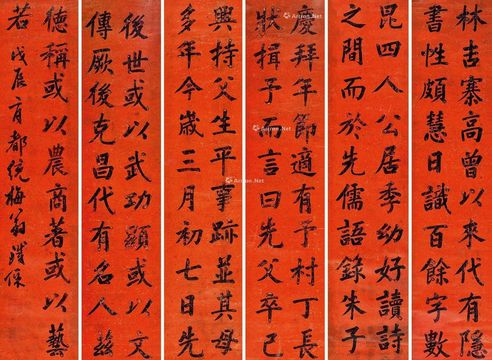 林古寨高曾以來代有隱
書性頗慧日識百餘字數
昆四人公居季幼好讀詩
之間而於先儒語錄朱子
慶拜年節適有予村丁長
狀揖予而言曰先父卒已
興持父生平事跡並其母
多年今歲三月初七日先
後世或以武功顯或以文
傳厥後克昌代有名人茲
德稱或以農商著或以藝
若 戊辰育都統梅翁